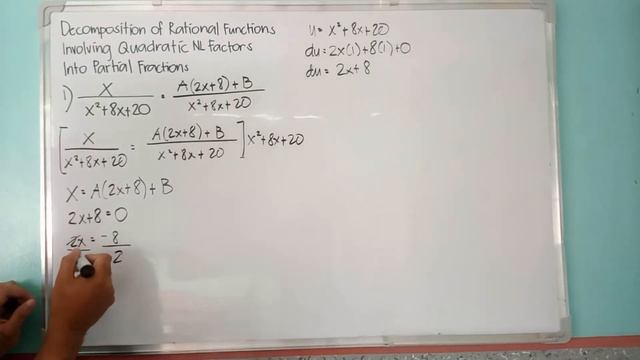 Decomposition of Rational Functions
Involving Quadratic NL Factors
Into Partial Fractions
1) x / x²+8x+20 = A(2x+8)+B / x²+8x+20
[x / x²+8x+20 = A(2x+8)+B / x²+8x+20] x²+8x+20
x = A(2x+8)+B
2x+8=0
2x = -8
2
u = x²+8x+20
du = 2x(1)+8(1)+0
du = 2x+8